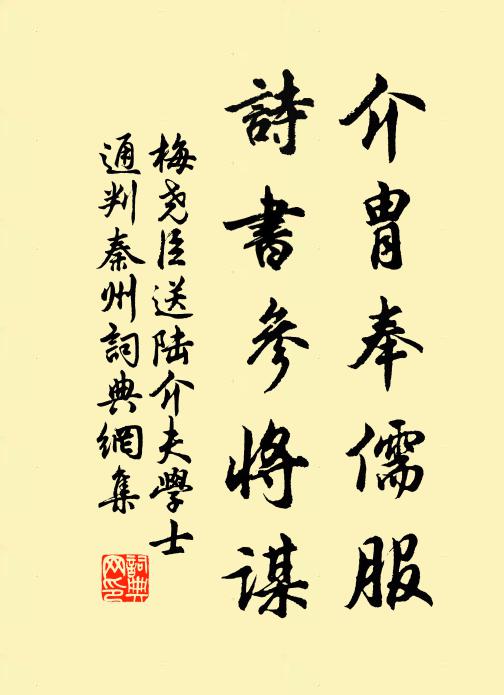 介胄奉儒服
詩書參將謀
梅堯臣送陆介夫學士
通判秦州詞典網集
詞典
网印